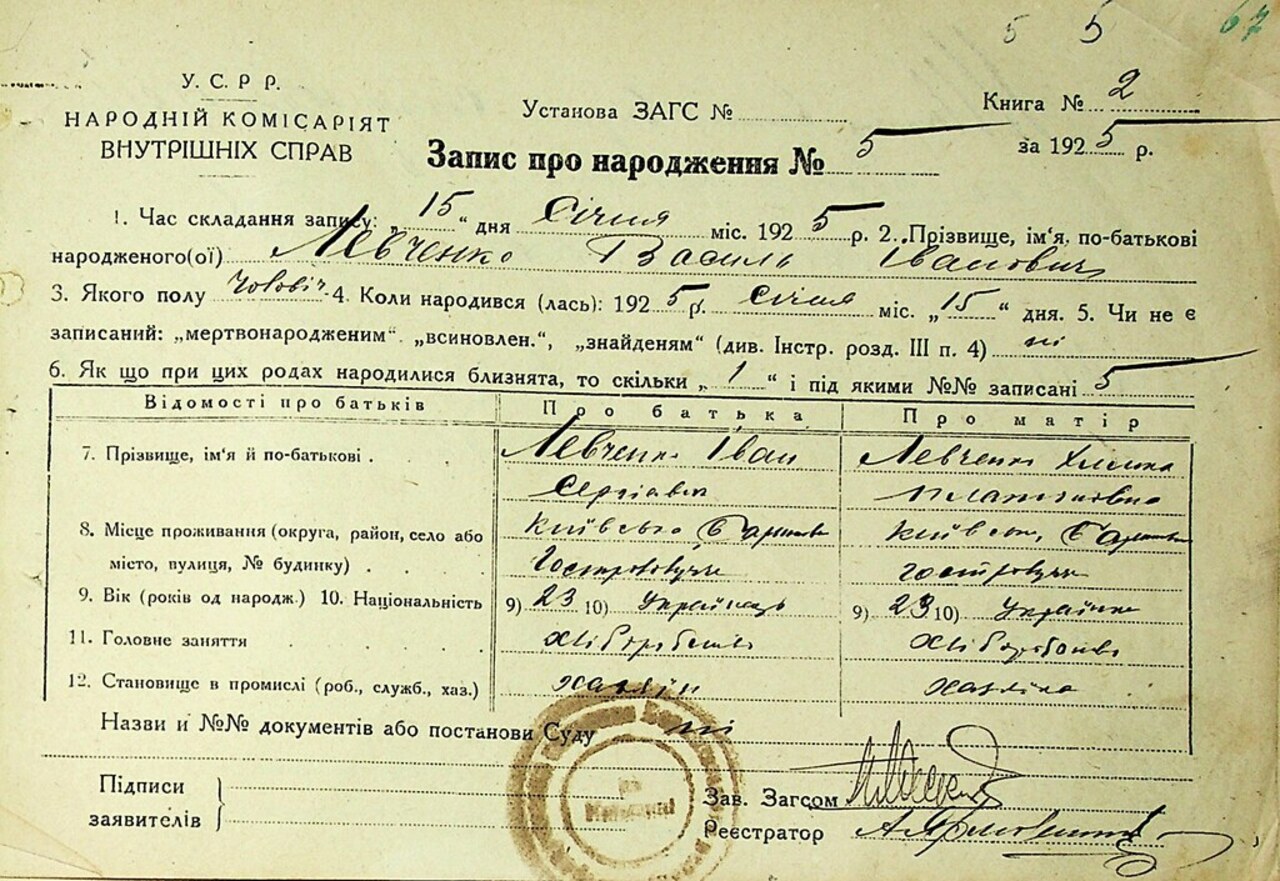 5 5 67
У. С. Р Р.
НАРОДНІЙ КОМІСАРІЯТ
ВНУТРІШНІХ СПРАВ
Установа ЗАГС №
Книга № 2
за 1925 р.
Запис про народження № 5
1. Час складання запису: „15“ дня Січня міс. 1925 р. 2. Прізвище, ім'я, по-батькові
народженого(ої) Левченко Василь Іванович
3. Якого полу чоловіч 4. Коли народився (лась): 1925 р. Січня міс. „15“ дня. 5. Чи не є
записаний: „мертвонародженим“. „всиновлен.“, „знайденям“ (див. Інстр. розд. III п. 4) ні
6. Як що при цих родах народилися близнята, то скільки „1“ і під якими №№ записані 5
Відомості про батьків Про батька Про матір
7. Прізвище, ім'я й по-батькові . Левченко Іван Левченко
8. Місце проживання (округа, район, село або Київсько Київсько
місто, вулиця, № будинку) . . .
9. Вік (років од народж.) 10. Національність 9) 23 10) Українець 9) 23 10) Українка
11. Головне заняття . . . .
12. Становище в промислі (роб., служб., хаз.) хазяїн хазяїка
Назви и №№ документів або постанови Суду ні
Підписи
заявителів
Зав. Загсом
Реєстратор